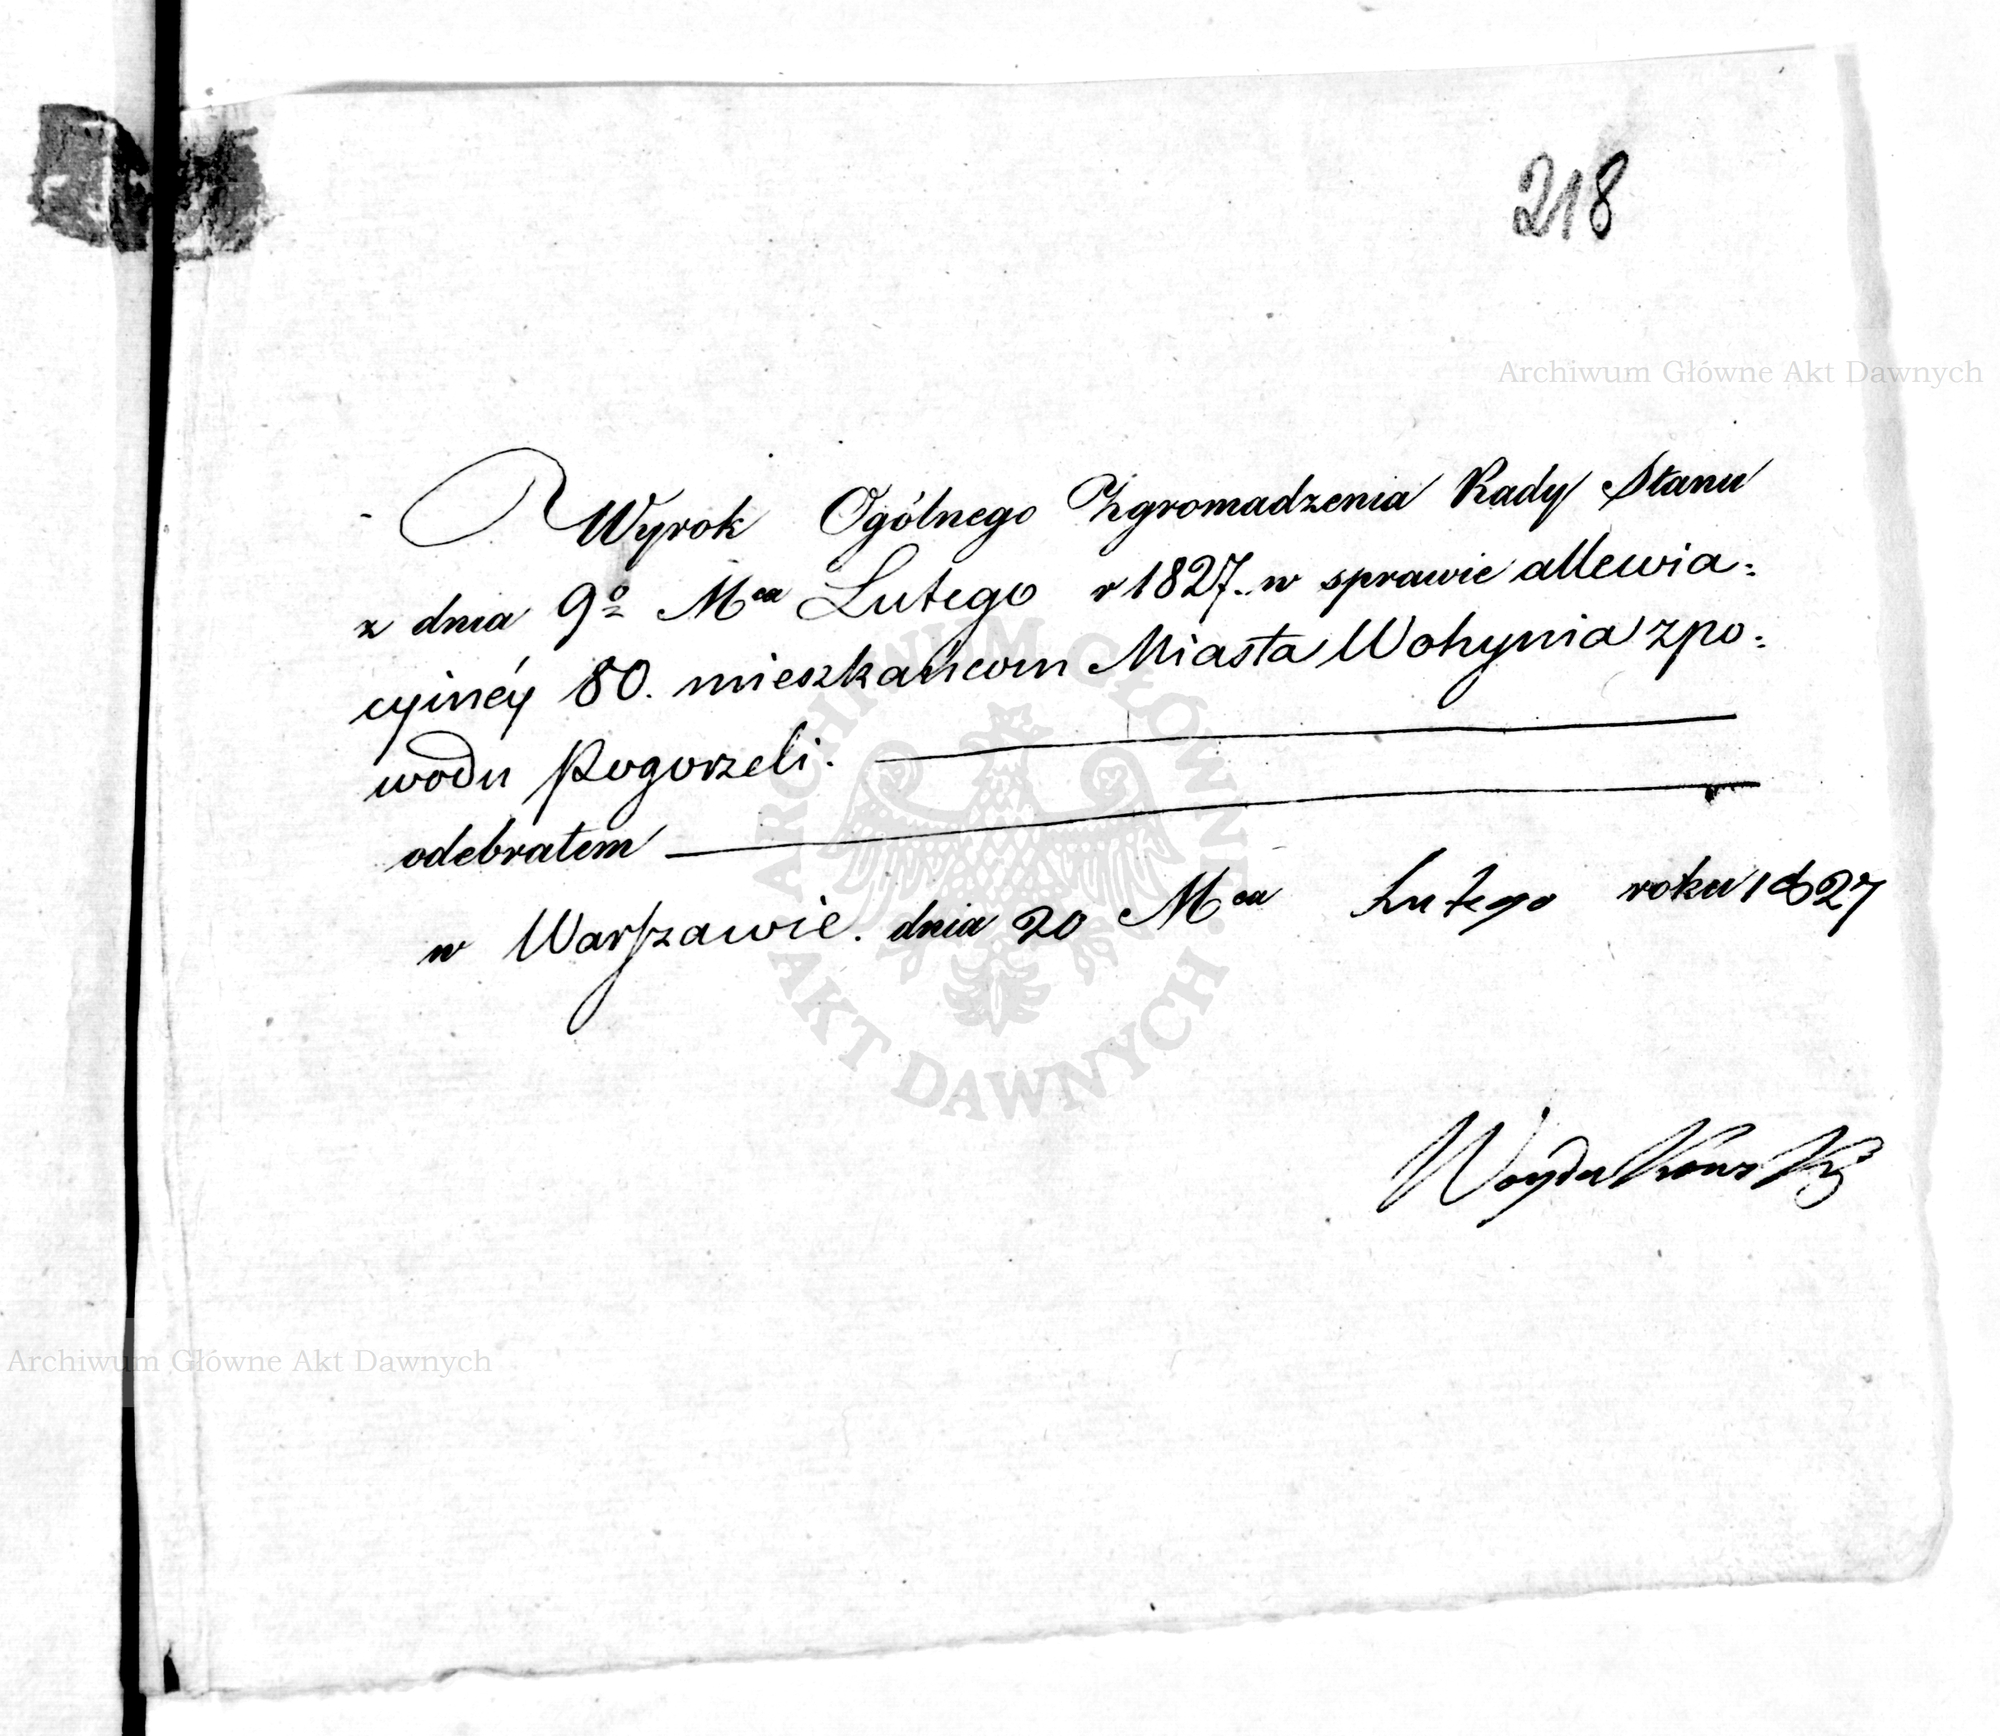 218
Archiwum Główne Akt Dawnych
Wyrok Ogólnego Zgromadzenia Rady Stanu
z dnia 9º Mca Lutego r 1827. w sprawie allewia:
cyinéy 80. mieszkańcom Miasta Wohynia z po:
wodu Pogorzeli.
odebrałem
w Warszawie. dnia 20 Mca Lutego roku 1827
ARCHIWUM GŁÓWNE AKT DAWNYCH
Archiwum Główne Akt Dawnych